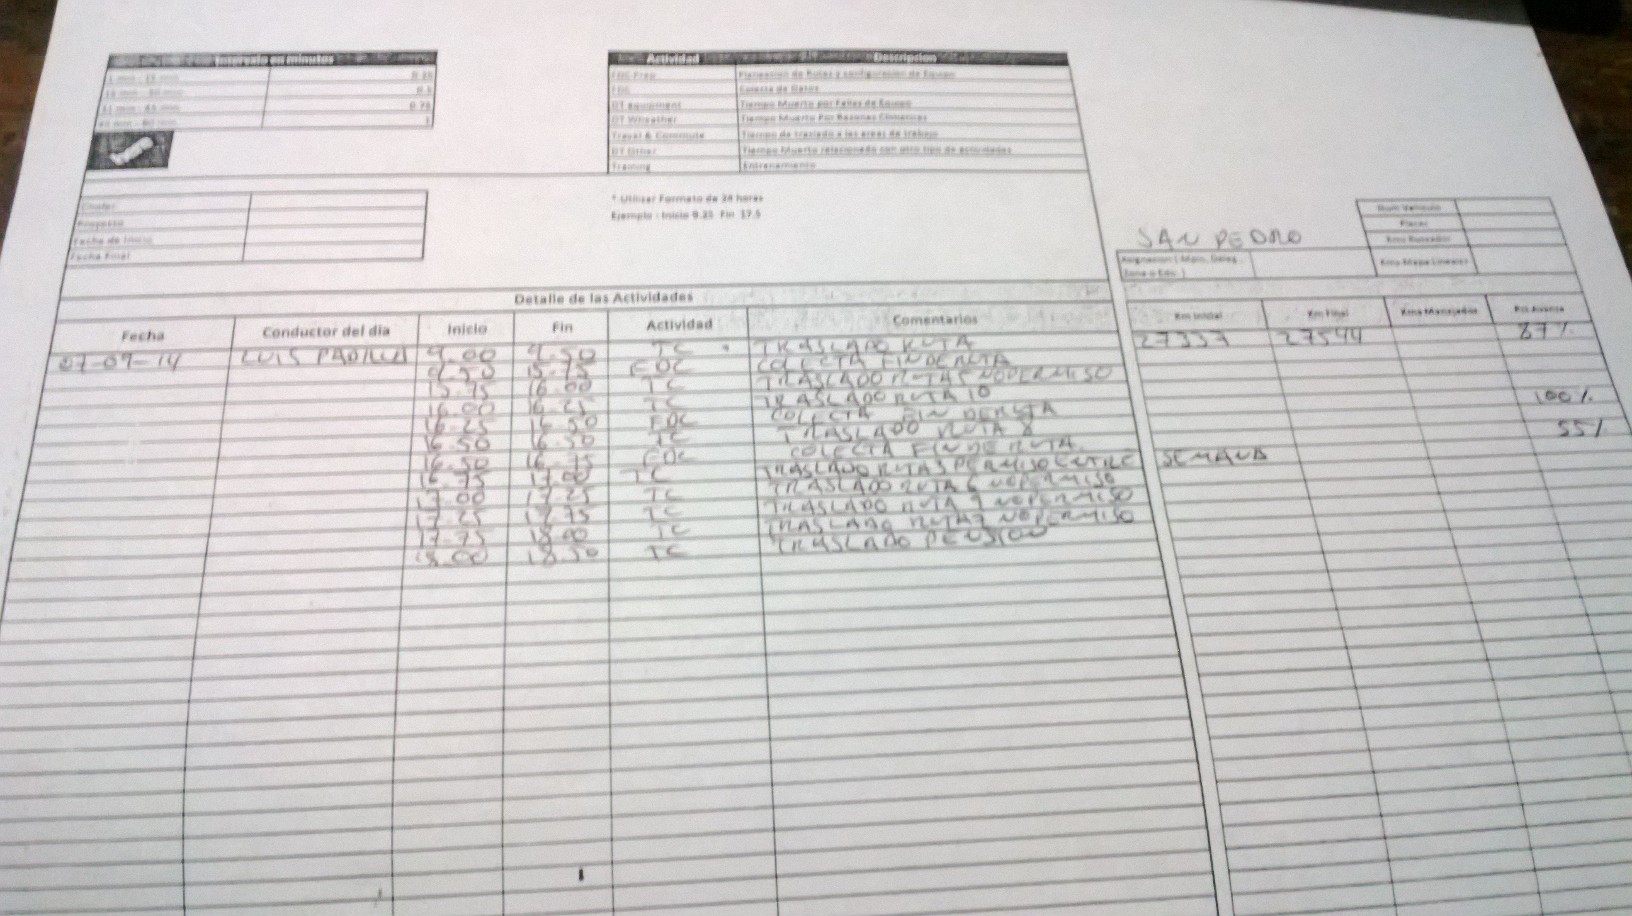 Intervalo en minutos
0.25
0.5
0.75
1
Actividad Descripcion
FDC Prep Planeacion de Rutas y configuracion de Equipo
FDC Colecta de Datos
DT equipment Tiempo Muerto por Fallas de Equipo
DT Wheather Tiempo Muerto Por Razones Climaticas
Travel & Commute Tiempo de traslado a las areas de trabajo
DT Other Tiempo Muerto relacionado con otro tipo de actividades
Training Entrenamiento
Cluster
Fecha de Inicio
Fecha Final
* Utilizar Formato de 24 horas
Ejemplo : Inicio 9.25 Fin 17.5
SAN PEDRO
Num Vehiculo
Placas
Asignacion ( Mpio, Deleg,
Zona o Edo. )
Detalle de las Actividades
Fecha Conductor del dia Inicio Fin Actividad Comentarios Km Inicial Km Final Kms Manejados
07-07-14 LUIS PADILLA 9.00 9.50 TC TRASLADO RUTA 27337 27544 87%
9.50 15.75 FDC COLECTA FIN DE RUTA
15.75 16.00 TC TRASLADO RUTA 5 NO PERMISO
16.00 16.25 TC TRASLADO RUTA 10
16.25 16.50 FDC COLECTA FIN DE RUTA 100%
16.50 16.50 TC TRASLADO RUTA 8
16.50 16.75 FDC COLECTA FIN DE RUTA 55%
16.75 17.00 TC TRASLADO RUTA 3 PERMISO ENTRE SEMANA
17.00 17.25 TC TRASLADO RUTA 6 NO PERMISO
17.25 17.75 TC TRASLADO RUTA 9 NO PERMISO
17.75 18.00 TC TRASLADO RUTA 7 NO PERMISO
18.00 18.50 TC TRASLADO PENSION